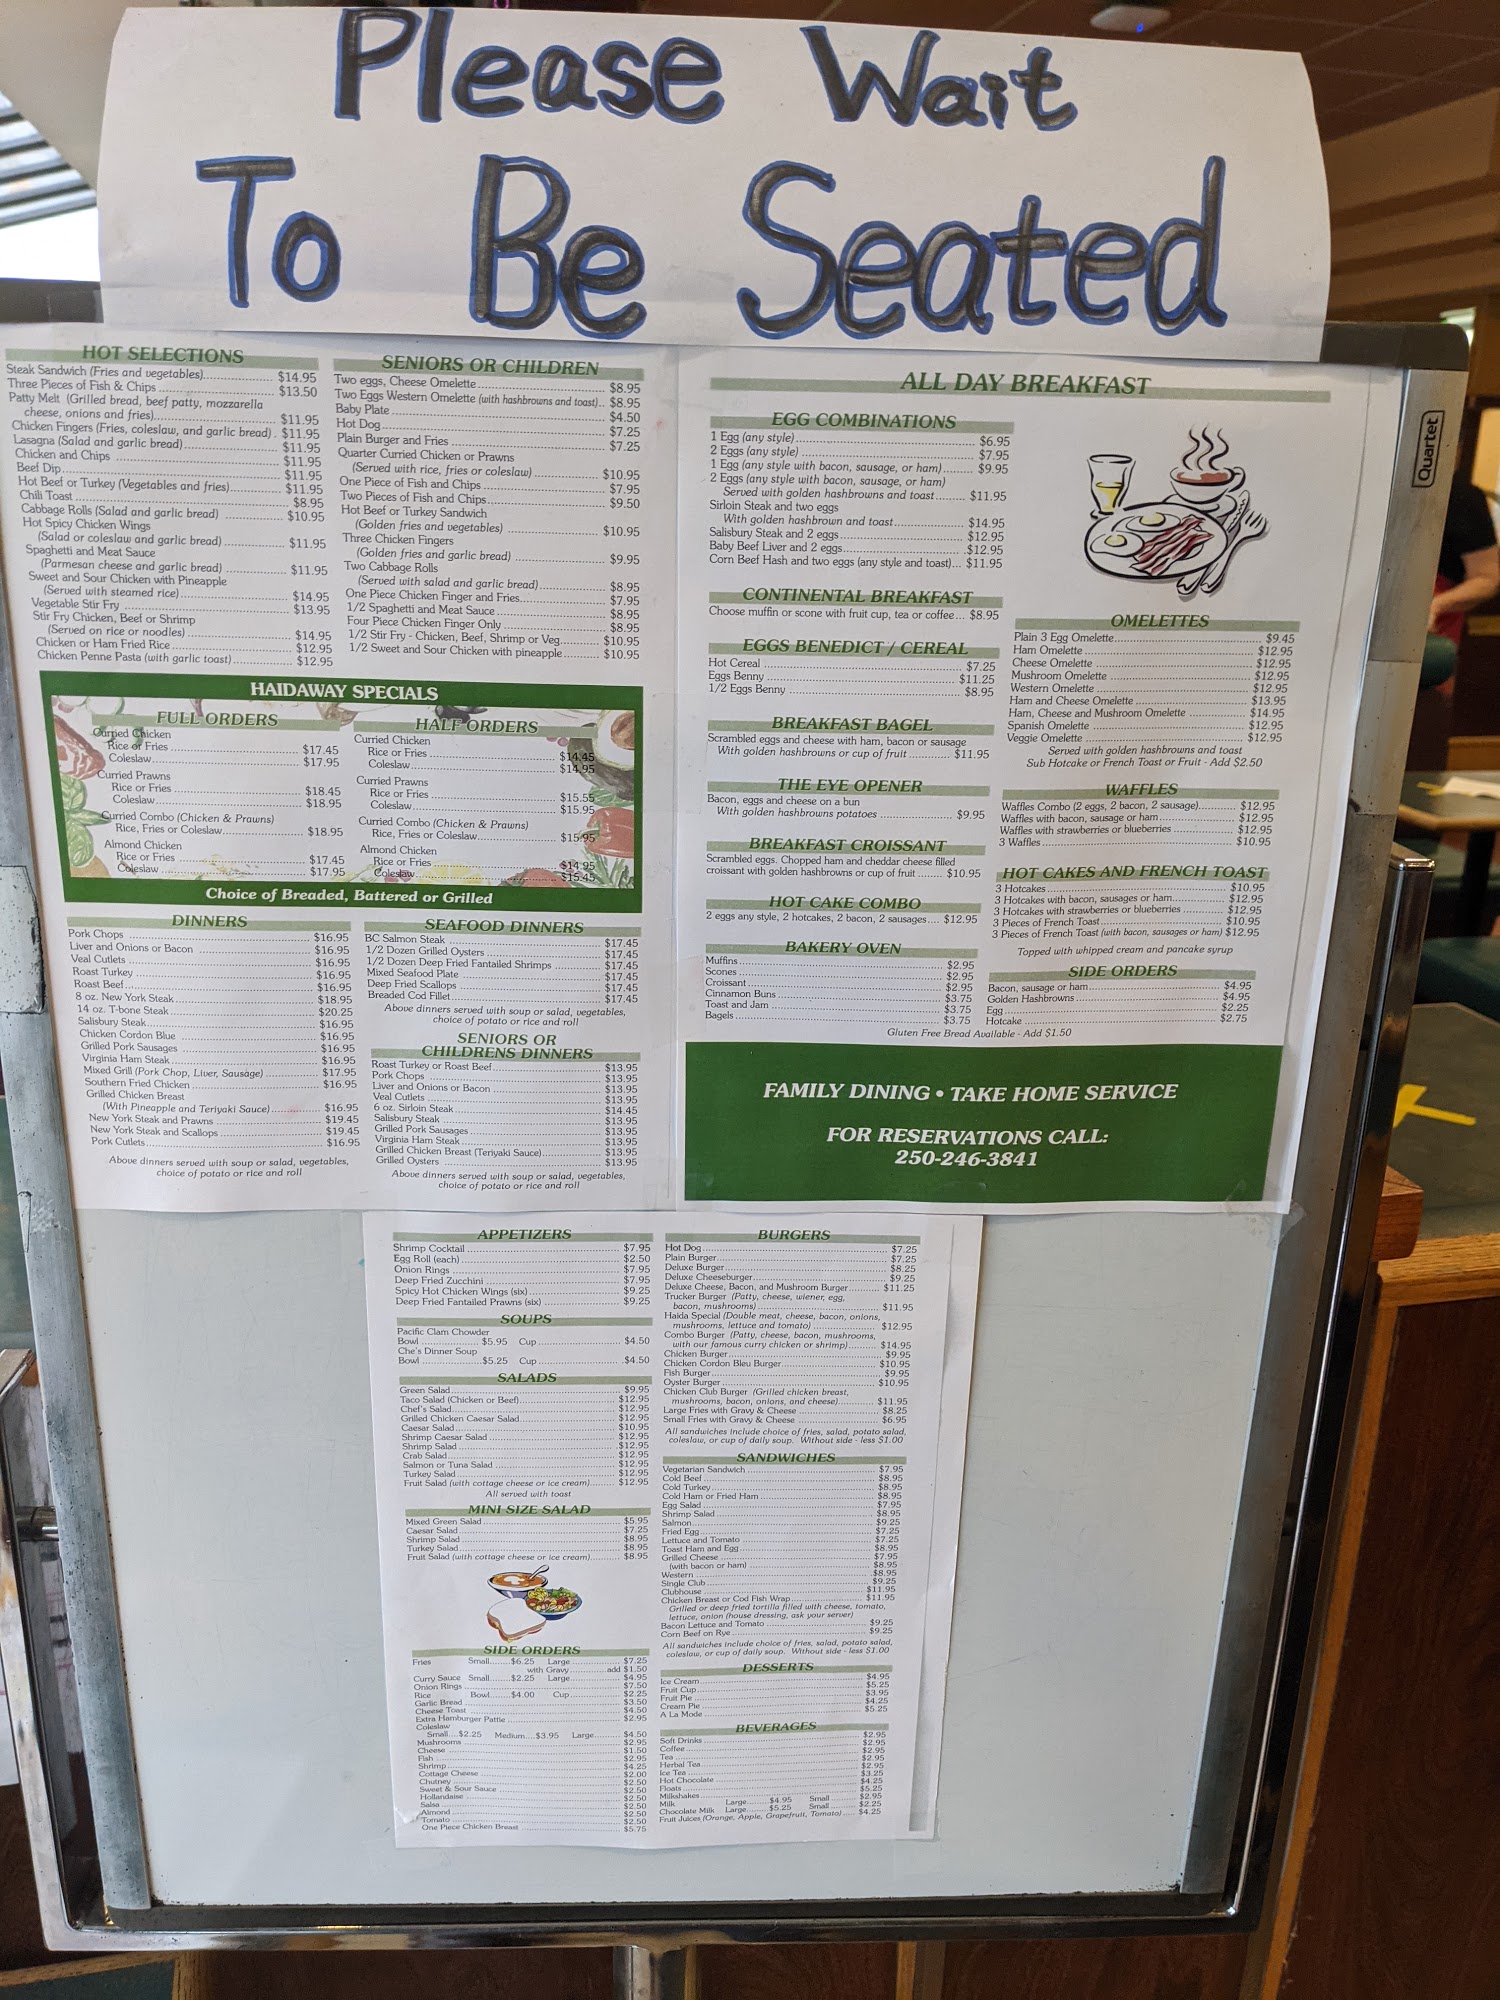 Please Wait
To Be Seated
Quartet
HOT SELECTIONS
Steak Sandwich (Fries and vegetables) $14.95
Three Pieces of Fish & Chips $13.50
Patty Melt (Grilled bread, beef patty, mozzarella
cheese, onions and fries) $11.95
Chicken Fingers (Fries, coleslaw, and garlic bread) $11.95
Lasagna (Salad and garlic bread) $11.95
Chicken and Chips $11.95
Beef Dip $11.95
Hot Beef or Turkey (Vegetables and fries) $11.95
Chili Toast $8.95
Cabbage Rolls (Salad and garlic bread) $10.95
Hot Spicy Chicken Wings
(Salad or coleslaw and garlic bread) $11.95
Spaghetti and Meat Sauce
(Parmesan cheese and garlic bread) $11.95
Sweet and Sour Chicken with Pineapple
(Served with steamed rice) $14.95
Vegetable Stir Fry $13.95
Stir Fry Chicken, Beef or Shrimp
(Served on rice or noodles) $14.95
Chicken or Ham Fried Rice $12.95
Chicken Penne Pasta (with garlic toast) $12.95
SENIORS OR CHILDREN
Two eggs, Cheese Omelette $8.95
Two Eggs Western Omelette (with hashbrowns and toast) $8.95
Baby Plate $4.50
Hot Dog $7.25
Plain Burger and Fries $7.25
Quarter Curried Chicken or Prawns
(Served with rice, fries or coleslaw) $10.95
One Piece of Fish and Chips $7.95
Two Pieces of Fish and Chips $9.50
Hot Beef or Turkey Sandwich
(Golden fries and vegetables) $10.95
Three Chicken Fingers
(Golden fries and garlic bread) $9.95
Two Cabbage Rolls
(Served with salad and garlic bread) $8.95
One Piece Chicken Finger and Fries $7.95
1/2 Spaghetti and Meat Sauce $8.95
Four Piece Chicken Finger Only $8.95
1/2 Stir Fry - Chicken, Beef, Shrimp or Veg $10.95
1/2 Sweet and Sour Chicken with pineapple $10.95
HAIDAWAY SPECIALS
FULL ORDERS
Curried Chicken
Rice or Fries $17.45
Coleslaw $17.95
Curried Prawns
Rice or Fries $18.45
Coleslaw $18.95
Curried Combo (Chicken & Prawns)
Rice, Fries or Coleslaw $18.95
Almond Chicken
Rice or Fries $17.45
Coleslaw $17.95
HALF ORDERS
Curried Chicken
Rice or Fries $14.45
Coleslaw $14.95
Curried Prawns
Rice or Fries $15.55
Coleslaw $15.95
Curried Combo (Chicken & Prawns)
Rice, Fries or Coleslaw $15.95
Almond Chicken
Rice or Fries $14.95
Coleslaw $15.45
Choice of Breaded, Battered or Grilled
DINNERS
Pork Chops $16.95
Liver and Onions or Bacon $16.95
Veal Cutlets $16.95
Roast Turkey $16.95
Roast Beef $16.95
8 oz. New York Steak $18.95
14 oz. T-bone Steak $20.25
Salisbury Steak $16.95
Chicken Cordon Blue $16.95
Grilled Pork Sausages $16.95
Virginia Ham Steak $16.95
Mixed Grill (Pork Chop, Liver, Sausage) $17.95
Southern Fried Chicken $16.95
Grilled Chicken Breast
(With Pineapple and Teriyaki Sauce) $16.95
New York Steak and Prawns $19.45
New York Steak and Scallops $19.45
Pork Cutlets $16.95
Above dinners served with soup or salad, vegetables,
choice of potato or rice and roll
SEAFOOD DINNERS
BC Salmon Steak $17.45
1/2 Dozen Grilled Oysters $17.45
1/2 Dozen Deep Fried Fantailed Shrimps $17.45
Mixed Seafood Plate $17.45
Deep Fried Scallops $17.45
Breaded Cod Fillet $17.45
Above dinners served with soup or salad, vegetables,
choice of potato or rice and roll
SENIORS OR
CHILDRENS DINNERS
Roast Turkey or Roast Beef $13.95
Pork Chops $13.95
Liver and Onions or Bacon $13.95
Veal Cutlets $13.95
6 oz. Sirloin Steak $14.45
Salisbury Steak $13.95
Grilled Pork Sausages $13.95
Virginia Ham Steak $13.95
Grilled Chicken Breast (Teriyaki Sauce) $13.95
Grilled Oysters $13.95
Above dinners served with soup or salad, vegetables,
choice of potato or rice and roll
ALL DAY BREAKFAST
EGG COMBINATIONS
1 Egg (any style) $6.95
2 Eggs (any style) $7.95
1 Egg (any style with bacon, sausage, or ham) $9.95
2 Eggs (any style with bacon, sausage, or ham)
Served with golden hashbrowns and toast $11.95
Sirloin Steak and two eggs
With golden hashbrown and toast $14.95
Salisbury Steak and 2 eggs $12.95
Baby Beef Liver and 2 eggs $12.95
Corn Beef Hash and two eggs (any style and toast) $11.95
CONTINENTAL BREAKFAST
Choose muffin or scone with fruit cup, tea or coffee $8.95
EGGS BENEDICT / CEREAL
Hot Cereal $7.25
Eggs Benny $11.25
1/2 Eggs Benny $8.95
BREAKFAST BAGEL
Scrambled eggs and cheese with ham, bacon or sausage
With golden hashbrowns or cup of fruit $11.95
THE EYE OPENER
Bacon, eggs and cheese on a bun
With golden hashbrowns potatoes $9.95
BREAKFAST CROISSANT
Scrambled eggs. Chopped ham and cheddar cheese filled
croissant with golden hashbrowns or cup of fruit $10.95
HOT CAKE COMBO
2 eggs any style, 2 hotcakes, 2 bacon, 2 sausages $12.95
BAKERY OVEN
Muffins $2.95
Scones $2.95
Croissant $2.95
Cinnamon Buns $3.75
Toast and Jam $3.75
Bagels $3.75
OMELETTES
Plain 3 Egg Omelette $9.45
Ham Omelette $12.95
Cheese Omelette $12.95
Mushroom Omelette $12.95
Western Omelette $12.95
Ham and Cheese Omelette $13.95
Ham, Cheese and Mushroom Omelette $14.95
Spanish Omelette $12.95
Veggie Omelette $12.95
Served with golden hashbrowns and toast
Sub Hotcake or French Toast or Fruit - Add $2.50
WAFFLES
Waffles Combo (2 eggs, 2 bacon, 2 sausage) $12.95
Waffles with bacon, sausage or ham $12.95
Waffles with strawberries or blueberries $12.95
3 Waffles $10.95
HOT CAKES AND FRENCH TOAST
3 Hotcakes $10.95
3 Hotcakes with bacon, sausages or ham $12.95
3 Hotcakes with strawberries or blueberries $12.95
3 Pieces of French Toast $10.95
3 Pieces of French Toast (with bacon, sausages or ham) $12.95
Topped with whipped cream and pancake syrup
SIDE ORDERS
Bacon, sausage or ham $4.95
Golden Hashbrowns $4.95
Egg $2.25
Hotcake $2.75
Gluten Free Bread Available - Add $1.50
FAMILY DINING • TAKE HOME SERVICE
FOR RESERVATIONS CALL:
250-246-3841
APPETIZERS
Shrimp Cocktail $7.95
Egg Roll (each) $2.50
Onion Rings $7.95
Deep Fried Zucchini $7.95
Spicy Hot Chicken Wings (six) $9.25
Deep Fried Fantailed Prawns (six) $9.25
SOUPS
Pacific Clam Chowder
Bowl $5.95 Cup $4.50
Che's Dinner Soup
Bowl $5.25 Cup $4.50
SALADS
Green Salad $9.95
Taco Salad (Chicken or Beef) $12.95
Chef's Salad $12.95
Grilled Chicken Caesar Salad $12.95
Caesar Salad $10.95
Shrimp Caesar Salad $12.95
Shrimp Salad $12.95
Crab Salad $12.95
Salmon or Tuna Salad $12.95
Turkey Salad $12.95
Fruit Salad (with cottage cheese or ice cream) $12.95
All served with toast
MINI SIZE SALAD
Mixed Green Salad $5.95
Caesar Salad $7.25
Shrimp Salad $8.95
Turkey Salad $8.95
Fruit Salad (with cottage cheese or ice cream) $8.95
SIDE ORDERS
Fries Small $6.25 Large $7.25
with Gravy add $1.50
Curry Sauce Small $2.25 Large $4.95
Onion Rings $7.50
Rice Bowl $4.00 Cup $2.25
Garlic Bread $3.50
Cheese Toast $4.50
Extra Hamburger Pattie $2.95
Coleslaw
Small $2.25 Medium $3.95 Large $4.50
Mushrooms $2.95
Cheese $1.50
Fish $2.95
Shrimp $4.25
Cottage Cheese $2.00
Chutney $2.50
Sweet & Sour Sauce $2.50
Hollandaise $2.50
Salsa $2.50
Almond $2.50
Tomato $2.50
One Piece Chicken Breast $5.75
BURGERS
Hot Dog $7.25
Plain Burger $7.25
Deluxe Burger $8.25
Deluxe Cheeseburger $9.25
Deluxe Cheese, Bacon, and Mushroom Burger $11.25
Trucker Burger (Patty, cheese, wiener, egg,
bacon, mushrooms) $11.95
Haida Special (Double meat, cheese, bacon, onions,
mushrooms, lettuce and tomato) $12.95
Combo Burger (Patty, cheese, bacon, mushrooms,
with our famous curry chicken or shrimp) $14.95
Chicken Burger $9.95
Chicken Cordon Bleu Burger $10.95
Fish Burger $9.95
Oyster Burger $10.95
Chicken Club Burger (Grilled chicken breast,
mushrooms, bacon, onions, and cheese) $11.95
Large Fries with Gravy & Cheese $8.25
Small Fries with Gravy & Cheese $6.95
All sandwiches include choice of fries, salad, potato salad,
coleslaw, or cup of daily soup. Without side - less $1.00
SANDWICHES
Vegetarian Sandwich $7.95
Cold Beef $8.95
Cold Turkey $8.95
Cold Ham or Fried Ham $8.95
Egg Salad $7.95
Shrimp Salad $8.95
Salmon $9.25
Fried Egg $7.25
Lettuce and Tomato $7.25
Toast Ham and Egg $8.95
Grilled Cheese $7.95
(with bacon or ham) $8.95
Western $8.95
Single Club $9.25
Clubhouse $11.95
Chicken Breast or Cod Fish Wrap $11.95
Grilled or deep fried tortilla filled with cheese, tomato,
lettuce, onion (house dressing, ask your server)
Bacon Lettuce and Tomato $9.25
Corn Beef on Rye $9.25
All sandwiches include choice of fries, salad, potato salad,
coleslaw, or cup of daily soup. Without side - less $1.00
DESSERTS
Ice Cream $4.95
Fruit Cup $5.25
Fruit Pie $3.95
Cream Pie $4.25
A La Mode $5.25
BEVERAGES
Soft Drinks $2.95
Coffee $2.95
Tea $2.95
Herbal Tea $2.95
Ice Tea $3.25
Hot Chocolate $4.25
Floats $5.25
Milkshakes $2.95
Milk Large $4.95 Small $2.25
Chocolate Milk Large $5.25 Small
Fruit Juices (Orange, Apple, Grapefruit, Tomato) $4.25